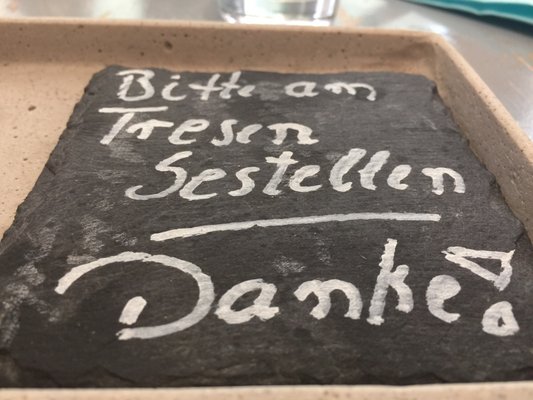 Bitte am
Tresen
Bestellen
Danke!